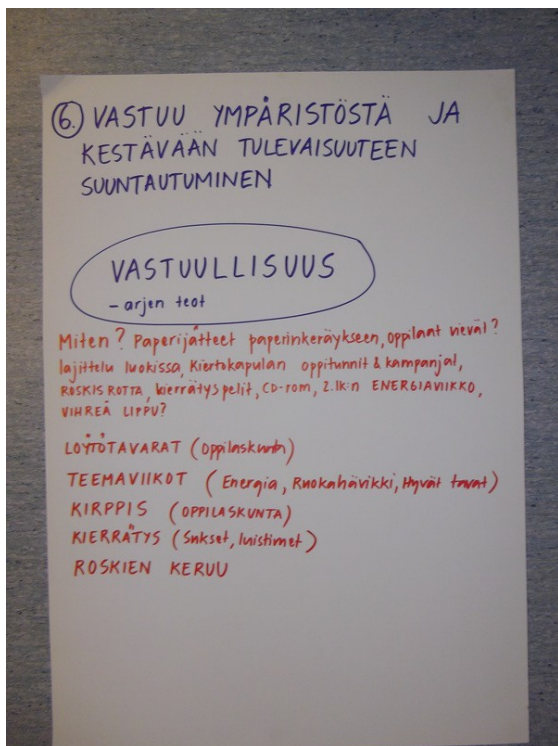 6. VASTUU YMPÄRISTÖSTÄ JA
KESTÄVÄÄN TULEVAISUUTEEN
SUUNTAUTUMINEN
VASTUULLISUUS
- arjen teot
Miten? Paperijätteet paperinkeräykseen, oppilaat vievät?
lajittelu luokissa, Kiertokapulan oppitunnit & kampanjat,
ROSKIS ROTTA, kierrätyspelit, CD-rom, 2.lk:n ENERGIAVIIKKO,
VIHREÄ LIPPU?
LÖYTÖTAVARAT (Oppilaskunta)
TEEMAVIIKOT (Energia, Ruokahävikki, Hyvät tavat)
KIRPPIS (OPPILASKUNTA)
KIERRÄTYS (Sukset, luistimet)
ROSKIEN KERUU